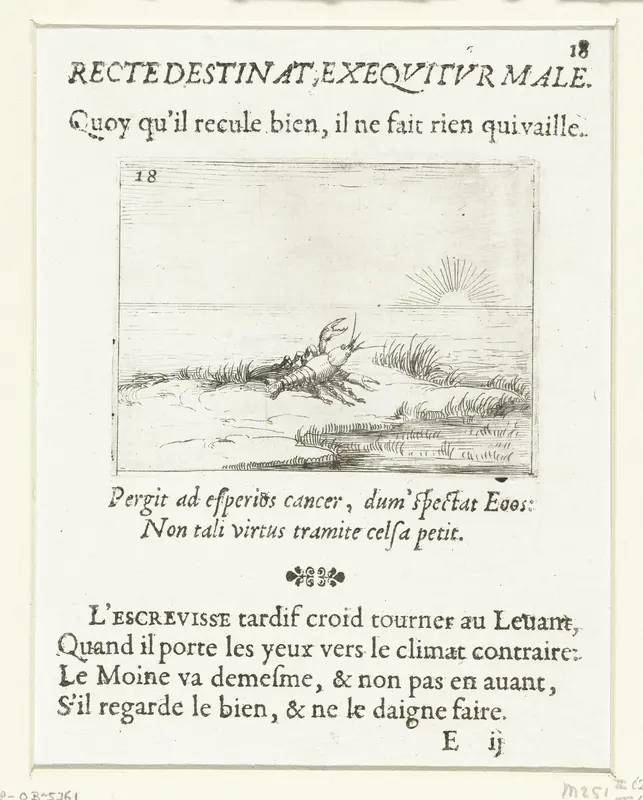 18
RECTE DESTINAT, EXEQVITVR MALE.
Quoy qu'il recule bien, il ne fait rien qui vaille.
18
Pergit ad eſperios cancer, dum ſpectat Eoos:
Non tali virtus tramite celſa petit.
L'ESCREVISSE tardif croid tourner au Leuant,
Quand il porte les yeux vers le climat contraire:
Le Moine va demeſme, & non pas en auant,
S'il regarde le bien, & ne le daigne faire.
E ij
P-OB-5761
M251